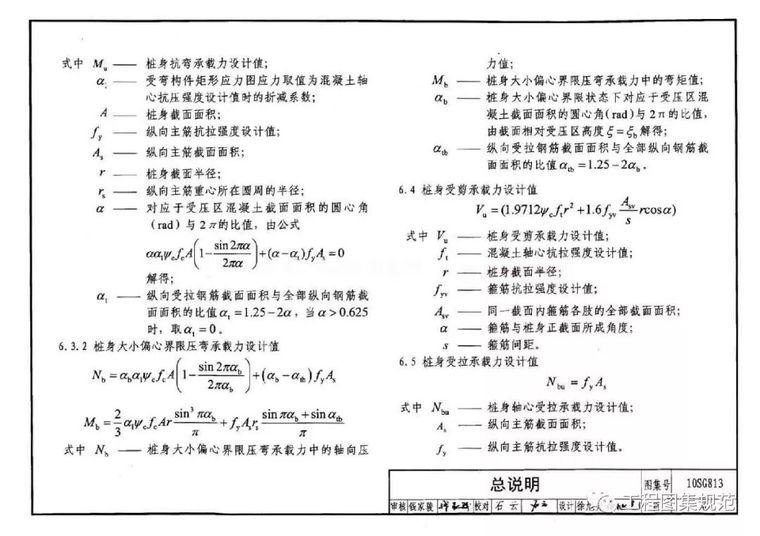 式中 Mu —— 桩身抗弯承载力设计值;
α1 —— 受弯构件矩形应力图应力取值为混凝土轴
心抗压强度设计值时的折减系数;
A —— 桩身截面面积;
fy —— 纵向主筋抗拉强度设计值;
As —— 纵向主筋截面面积;
r —— 桩身截面半径;
rs —— 纵向主筋重心所在圆周的半径;
α —— 对应于受压区混凝土截面面积的圆心角
(rad)与2π的比值,由公式
αα1ψcfcA(1-sin2πα/2πα)+(α-αt)fyAs=0
解得;
αt —— 纵向受拉钢筋截面面积与全部纵向钢筋截
面面积的比值αt=1.25-2α,当α>0.625
时,取αt=0。
6.3.2 桩身大小偏心界限压弯承载力设计值
Nb=αbα1ψcfcA(1-sin2παb/2παb)+(αb-αtb)fyAs
Mb=2/3α1ψcfcAr sin³παb/π+fyAsrs sinπαb+sinαtb/π
式中 Nb —— 桩身大小偏心界限压弯承载力中的轴向压
力值;
Mb —— 桩身大小偏心界限压弯承载力中的弯矩值;
αb —— 桩身大小偏心界限状态下对应于受压区混
凝土截面面积的圆心角(rad)与2π的比值,
由截面相对受压区高度ξ=ξb解得;
αtb —— 纵向受拉钢筋截面面积与全部纵向钢筋截
面面积的比值αtb=1.25-2αb。
6.4 桩身受剪承载力设计值
Vu=(1.9712ψcftr²+1.6fyv Asv/s rcosα)
式中 Vu —— 桩身受剪承载力设计值;
ft —— 混凝土轴心抗拉强度设计值;
r —— 桩身截面半径;
fyv —— 箍筋抗拉强度设计值;
Asv —— 同一截面内箍筋各肢的全部截面面积;
α —— 箍筋与桩身正截面所成角度;
s —— 箍筋间距。
6.5 桩身受拉承载力设计值
Nbu=fyAs
式中 Nbu —— 桩身轴心受拉承载力设计值;
As —— 纵向主筋截面面积;
fy —— 纵向主筋抗拉强度设计值。
总说明 图集号 10SG813
审核 钱家骏 校对 石云 设计
工程图集规范